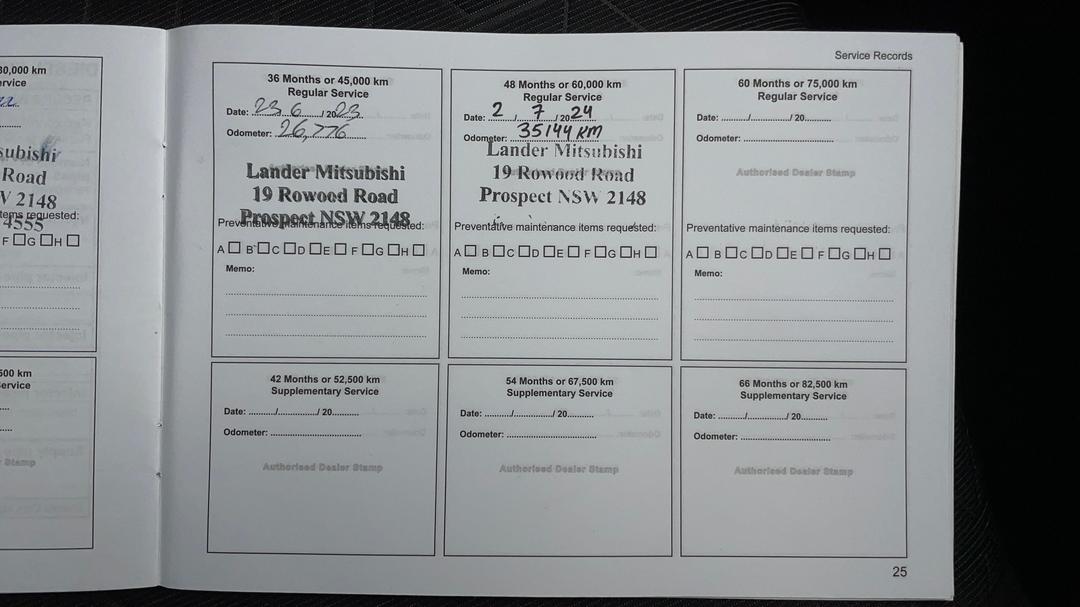 30,000 km
ervice
22
subishi
Road
V 2148
tems requested:
4555
F G H
500 km
ervice
r Stamp
Service Records
36 Months or 45,000 km
Regular Service
Date: 23 / 6 / 2023
Odometer: 26,776
Lander Mitsubishi
19 Rowood Road
Prospect NSW 2148
Preventative maintenance items requested:
A B C D E F G H
Memo:
48 Months or 60,000 km
Regular Service
Date: 2 / 7 / 2024
Odometer: 35144 KM
Lander Mitsubishi
19 Rowood Road
Prospect NSW 2148
Preventative maintenance items requested:
A B C D E F G H
Memo:
60 Months or 75,000 km
Regular Service
Date: ........./................/ 20..........
Odometer: ...................................
Authorised Dealer Stamp
Preventative maintenance items requested:
A B C D E F G H
Memo:
42 Months or 52,500 km
Supplementary Service
Date: ........./................/ 20..........
Odometer: ...................................
Authorised Dealer Stamp
54 Months or 67,500 km
Supplementary Service
Date: ........./................/ 20..........
Odometer: ...................................
Authorised Dealer Stamp
66 Months or 82,500 km
Supplementary Service
Date: ........./................/ 20..........
Odometer: ...................................
Authorised Dealer Stamp
25